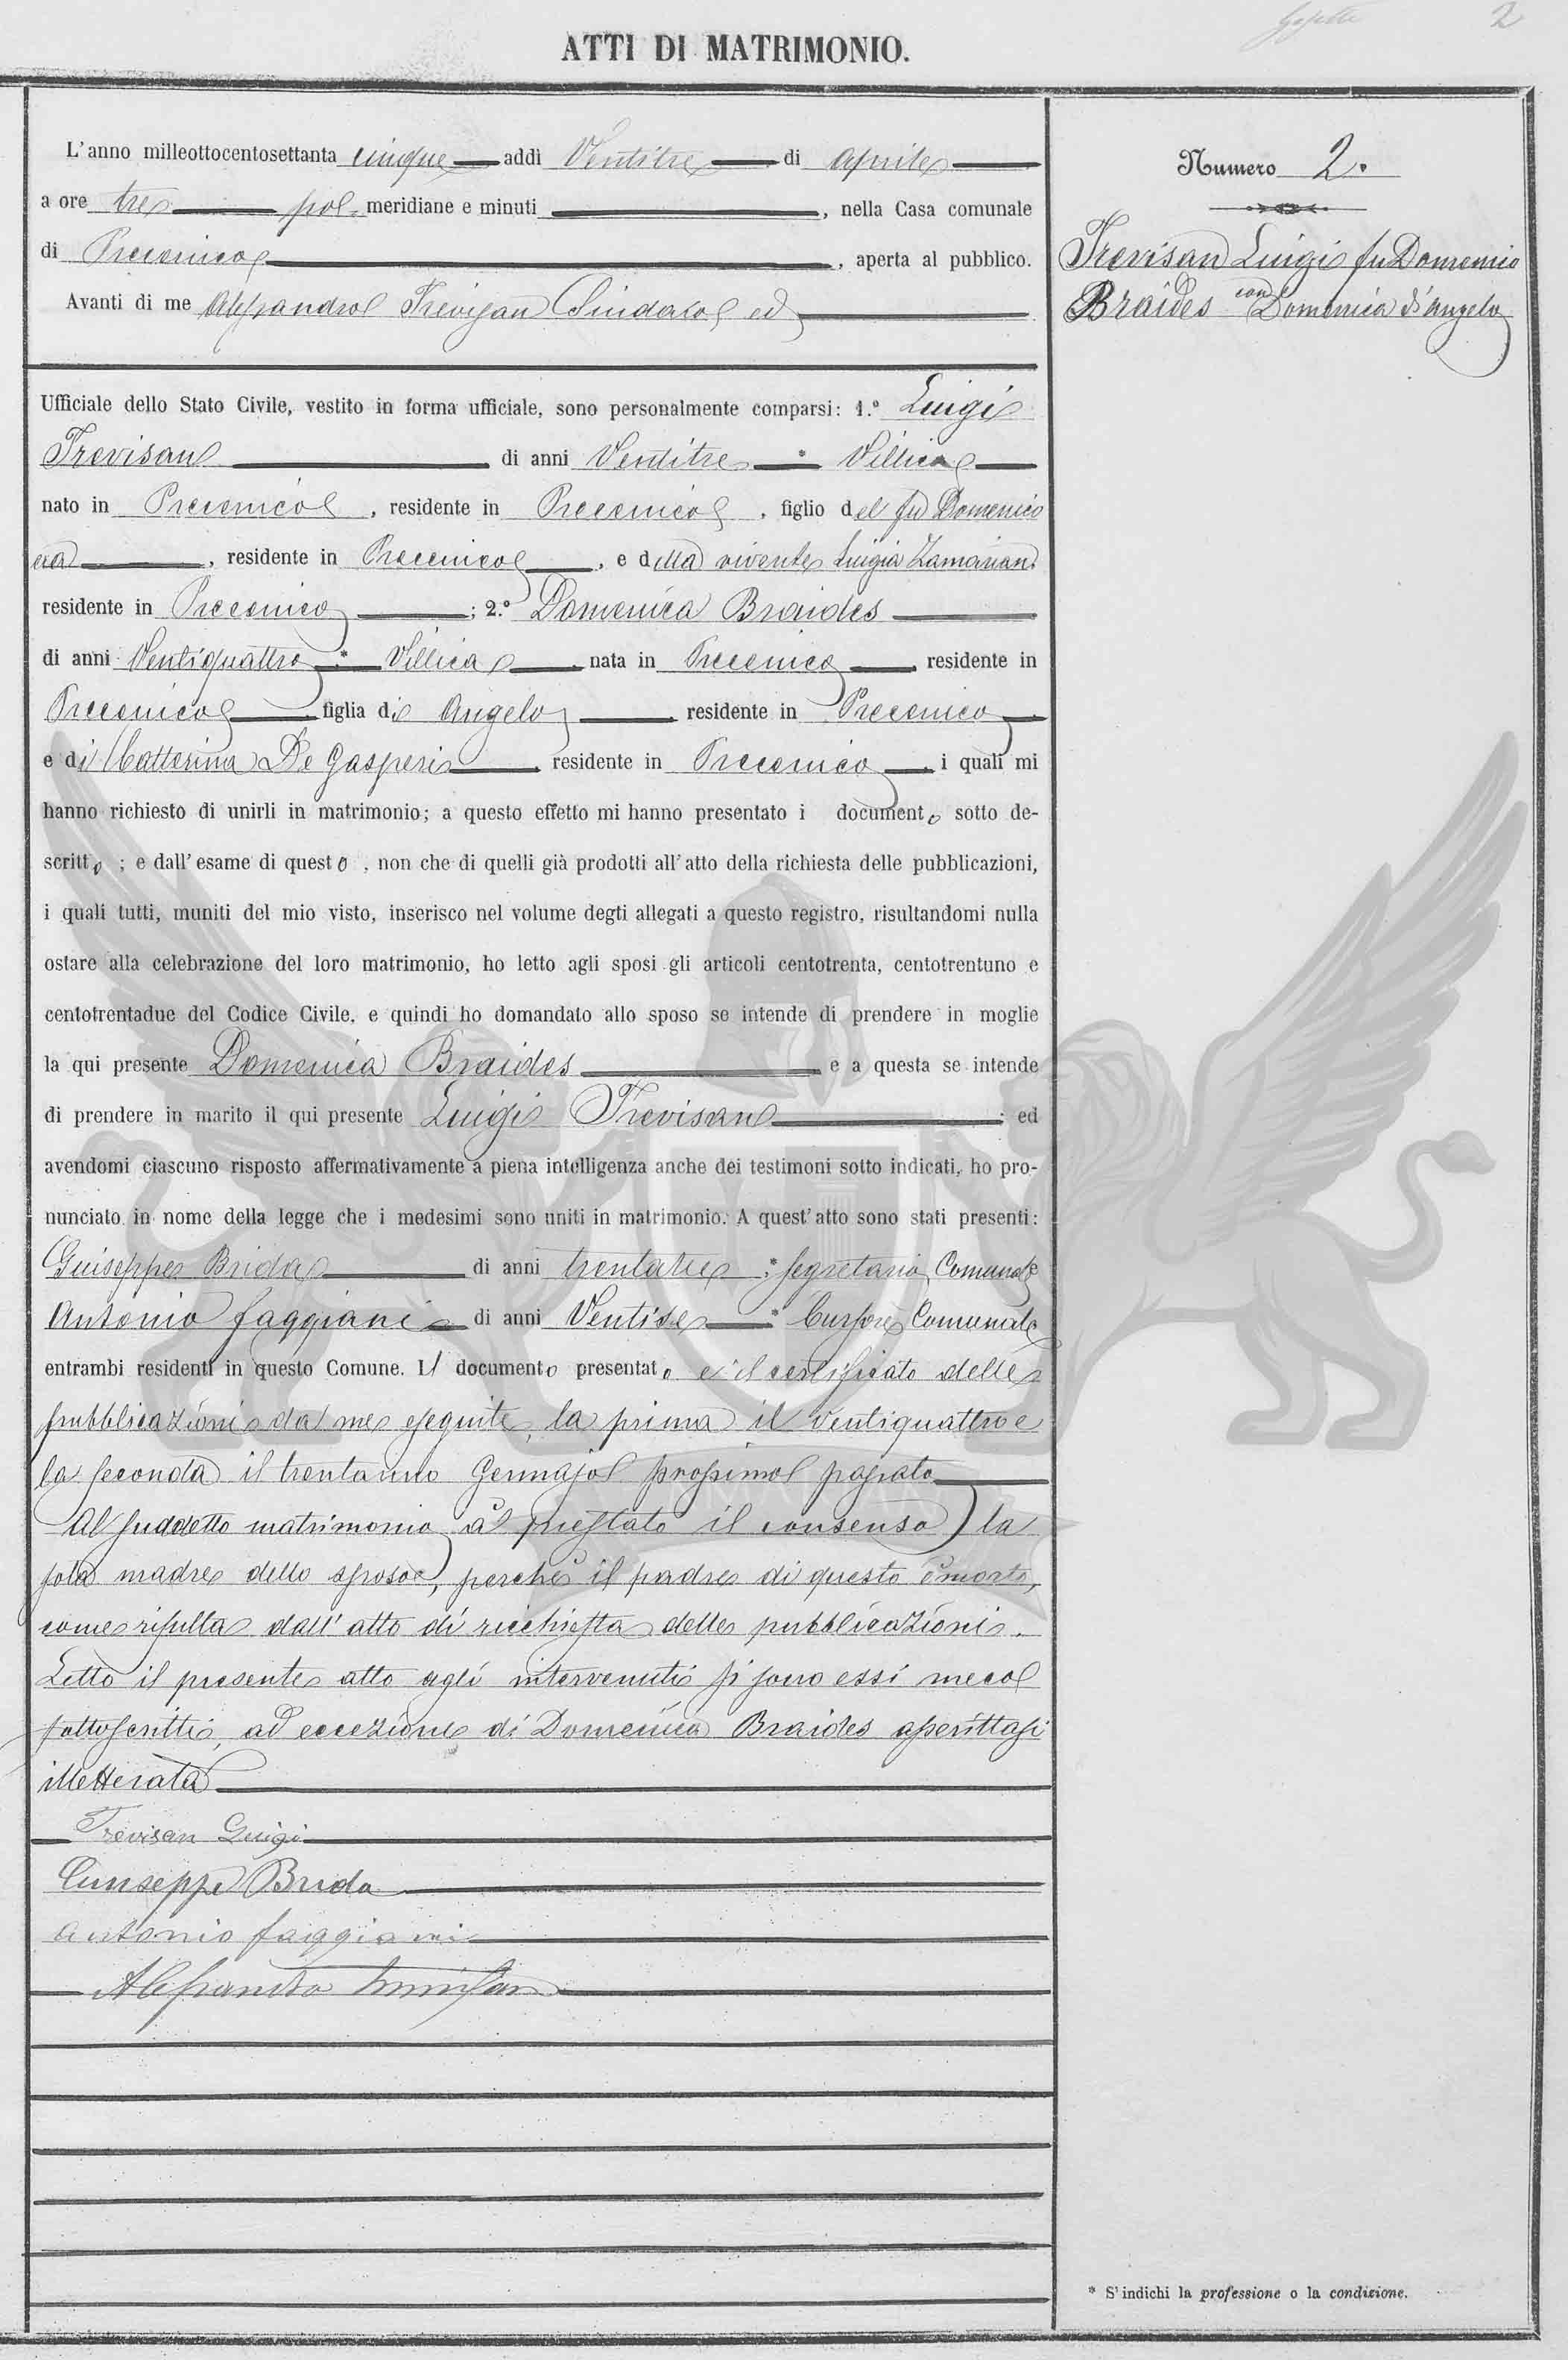 2
ATTI DI MATRIMONIO.
L'anno milleottocentosettanta cinque addì Ventitre di Aprile
a ore tre pol. meridiane e minuti , nella Casa comunale
di Precenico , aperta al pubblico.
Avanti di me Alessandro Trevisan Sindaco ed
Ufficiale dello Stato Civile, vestito in forma ufficiale, sono personalmente comparsi: 1.° Luigi
Trevisan di anni Ventitre * Villico
nato in Precenico , residente in Precenico , figlio del fu Domenico
era , residente in Precenico , e della vivente Luigia Zamarian
residente in Precenico ; 2.° Domenica Braides
di anni Ventiquattro * Villica nata in Precenico residente in
Precenico figlia di Angelo residente in Precenico
e di Catterina De Gasperi residente in Precenico i quali mi
hanno richiesto di unirli in matrimonio; a questo effetto mi hanno presentato i documento sotto de-
scritto ; e dall'esame di questo , non che di quelli già prodotti all'atto della richiesta delle pubblicazioni,
i quali tutti, muniti del mio visto, inserisco nel volume degti allegati a questo registro, risultandomi nulla
ostare alla celebrazione del loro matrimonio, ho letto agli sposi gli articoli centotrenta, centotrentuno e
centotrentadue del Codice Civile, e quindi ho domandato allo sposo se intende di prendere in moglie
la qui presente Domenica Braides e a questa se intende
di prendere in marito il qui presente Luigi Trevisan ; ed
avendomi ciascuno risposto affermativamente a piena intelligenza anche dei testimoni sotto indicati, ho pro-
nunciato in nome della legge che i medesimi sono uniti in matrimonio. A quest'atto sono stati presenti:
Guiseppe Brida di anni trentatre * Segretario Comunale
Antonio Faggiani di anni Ventisei * Cursore Comunale
entrambi residenti in questo Comune. Il documento presentato e' il certificato delle
pubblicazioni da me eseguite, la prima il ventiquattro e
la seconda il trentauno Gennajo prossimo passato
Al suddetto matrimonio à prestato il consenso la
sola madre dello sposo, perché il padre di questo è morto,
come risulta dall'atto di ricchiesta delle pubblicazioni.
Letto il presente atto agli intervenuti si sono essi meco
sottoscritti, ad eccezione di Domenica Braides asserittasi
illetterata
Trevisan Luigi
Giuseppe Brida
Antonio faggiani
Alessandro Trevisan
Numero 2.
Trevisan Luigi fu Domenico
con
Braides Domenica di Angelo
* S'indichi la professione o la condizione.